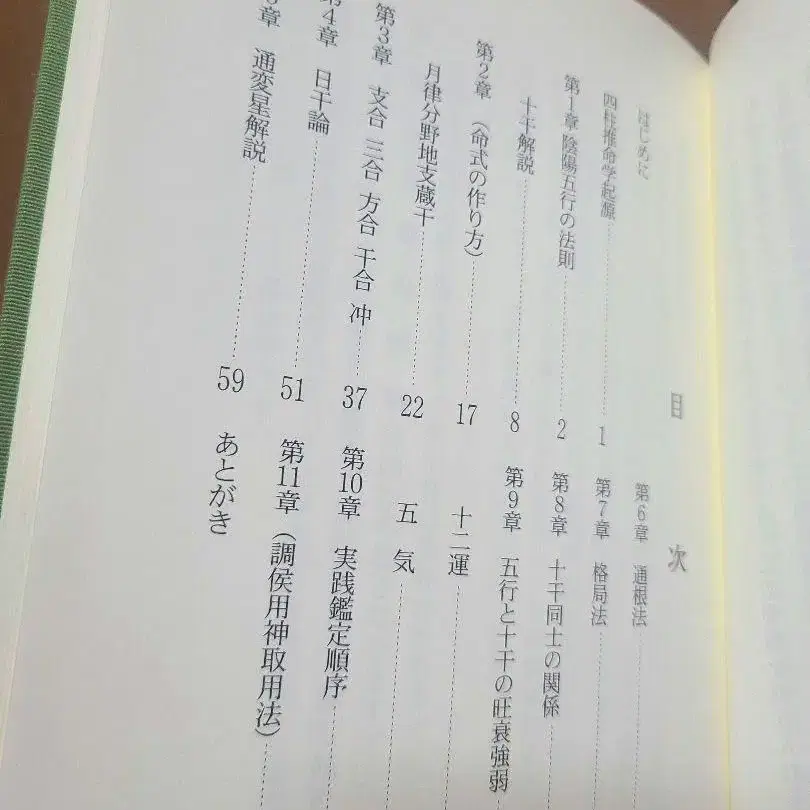 目次
はじめに
四柱推命学起源 1
第1章 陰陽五行の法則 2
十干解説 8
第2章 (命式の作り方) 17
月律分野地支蔵干 22
第3章 支合 三合 方合 干合 冲 37
第4章 日干論 51
章 通変星解説 59
第6章 通根法
第7章 格局法
第8章 十干同士の関係
第9章 五行と十干の旺衰強弱
十二運
五気
第10章 実践鑑定順序
第11章 (調侯用神取用法)
あとがき